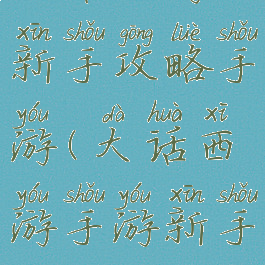 xīn shǒu gōng lüè shǒu
新手攻略手
yóu dà huà xī
游(大话西
yóu shǒu yóu xīn shǒu
游手游新手